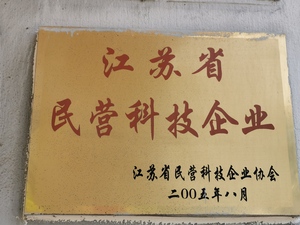 江苏省
民营科技企业
江苏省民营科技企业协会
二00五年八月